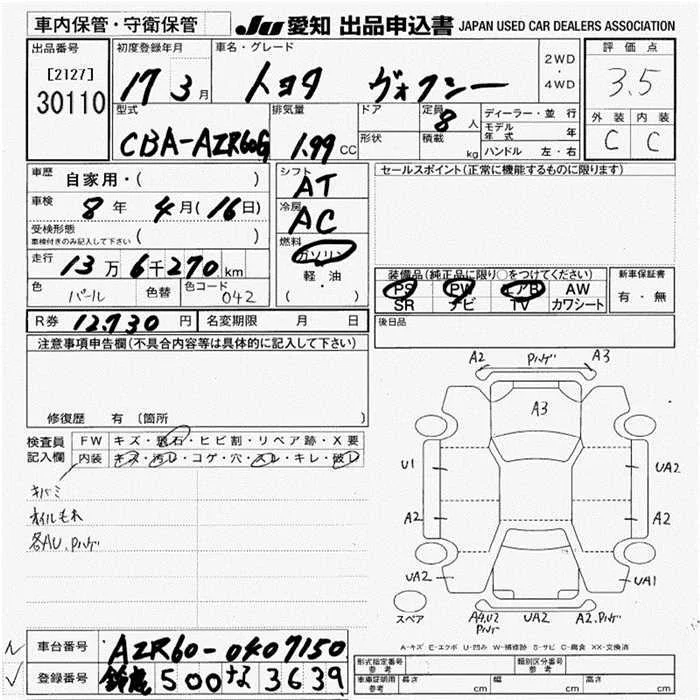 車内保管・守衛保管
JU 愛知 出品申込書 JAPAN USED CAR DEALERS ASSOCIATION
出品番号
[2127]
30110
初度登録年月
17 3月
車名・グレード
トヨタ ヴォクシー
2WD
・
4WD
評価点
3.5
外装 内装
C C
型式
CBA-AZR60G
排気量
1.99 CC
ドア
形状
定員
8人
積載
kg
ディーラー・並行
モデル年式 年
ハンドル 左・右
車歴
自家用・( )
車検
8年 4月(16日)
受検形態
車検付きのみ記入して下さい ( )
走行
13万6千270km
色
パール
色替
色コード
042
シフト
AT
冷房
AC
燃料
ガソリン
軽・油
( ・ )
セールスポイント(正常に機能するものに限ります)
装備品(純正品に限り○をつけてください)
PS PW エアB AW
SR ナビ TV カワシート
新車保証書
有・無
R券 12,730 円 名変期限 月 日
後日品
注意事項申告欄(不具合内容等は具体的に記入して下さい)
修復歴 有 〔箇所 〕
検査員
記入欄
FW キズ・飛石・ヒビ割・リペア跡・X要
内装 キズ・汚レ・コゲ・穴・スレ・キレ・破レ
キバミ
オイルもれ
各AU、Pハゲ
A2 Pハゲ A3
A3
U1 UA2
A2 A2
UA2 UA1
スペア
A4,U2 Pハゲ UA2 A2.Pハゲ
A-キズ E-エクボ U-凹み W-補修跡 S-サビ C-腐食 XX-交換済
車台番号 AZR60-0407150
登録番号 500な3639
形式指定番号 参考 類別区分番号 参考
車庫証明用 参考 長さ cm 幅 cm 高さ cm